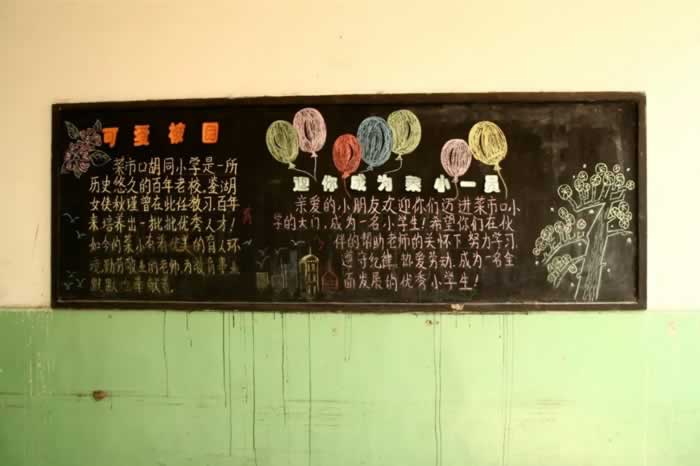 可爱校园
菜市口胡同小学是一所
历史悠久的百年老校,鉴湖
女侠秋瑾曾在此任教习,百年
来培养出一批批优秀人才!
如今的菜小有着优美的育人环
境,勤劳敬业的老师,为教育事业
默默地奉献。
迎你成为菜小一员
亲爱的小朋友欢迎你们迈进菜市口小
学的大门,成为一名小学生!希望你们在伙
伴的帮助老师的关怀下,努力学习,
遵守纪律,热爱劳动,成为一名全
面发展的优秀小学生!